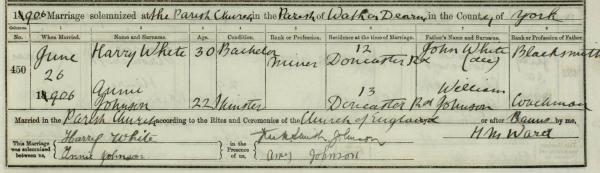 1906 Marriage solemnized at the Parish Church in the Parish of Wath on Dearne in the County of York
Columns:— 1 2 3 4 5 6 7 8
No. When Married. Name and Surname. Age. Condition. Rank or Profession. Residence at the time of Marriage. Father's Name and Surname. Rank or Profession of Father.
450 June 26 1906 Harry White 30 Bachelor Miner 12 Doncaster Rd John White (dec) Blacksmith
Annie Johnson 22 Spinster 13 Doncaster Rd William Johnson Coachman
Married in the Parish Church according to the Rites and Ceremonies of the Church of England or after Banns by me,
This Marriage was solemnized between us, Harry White Annie Johnson in the Presence of us, Smith Johnson Amy Johnson H M Ward